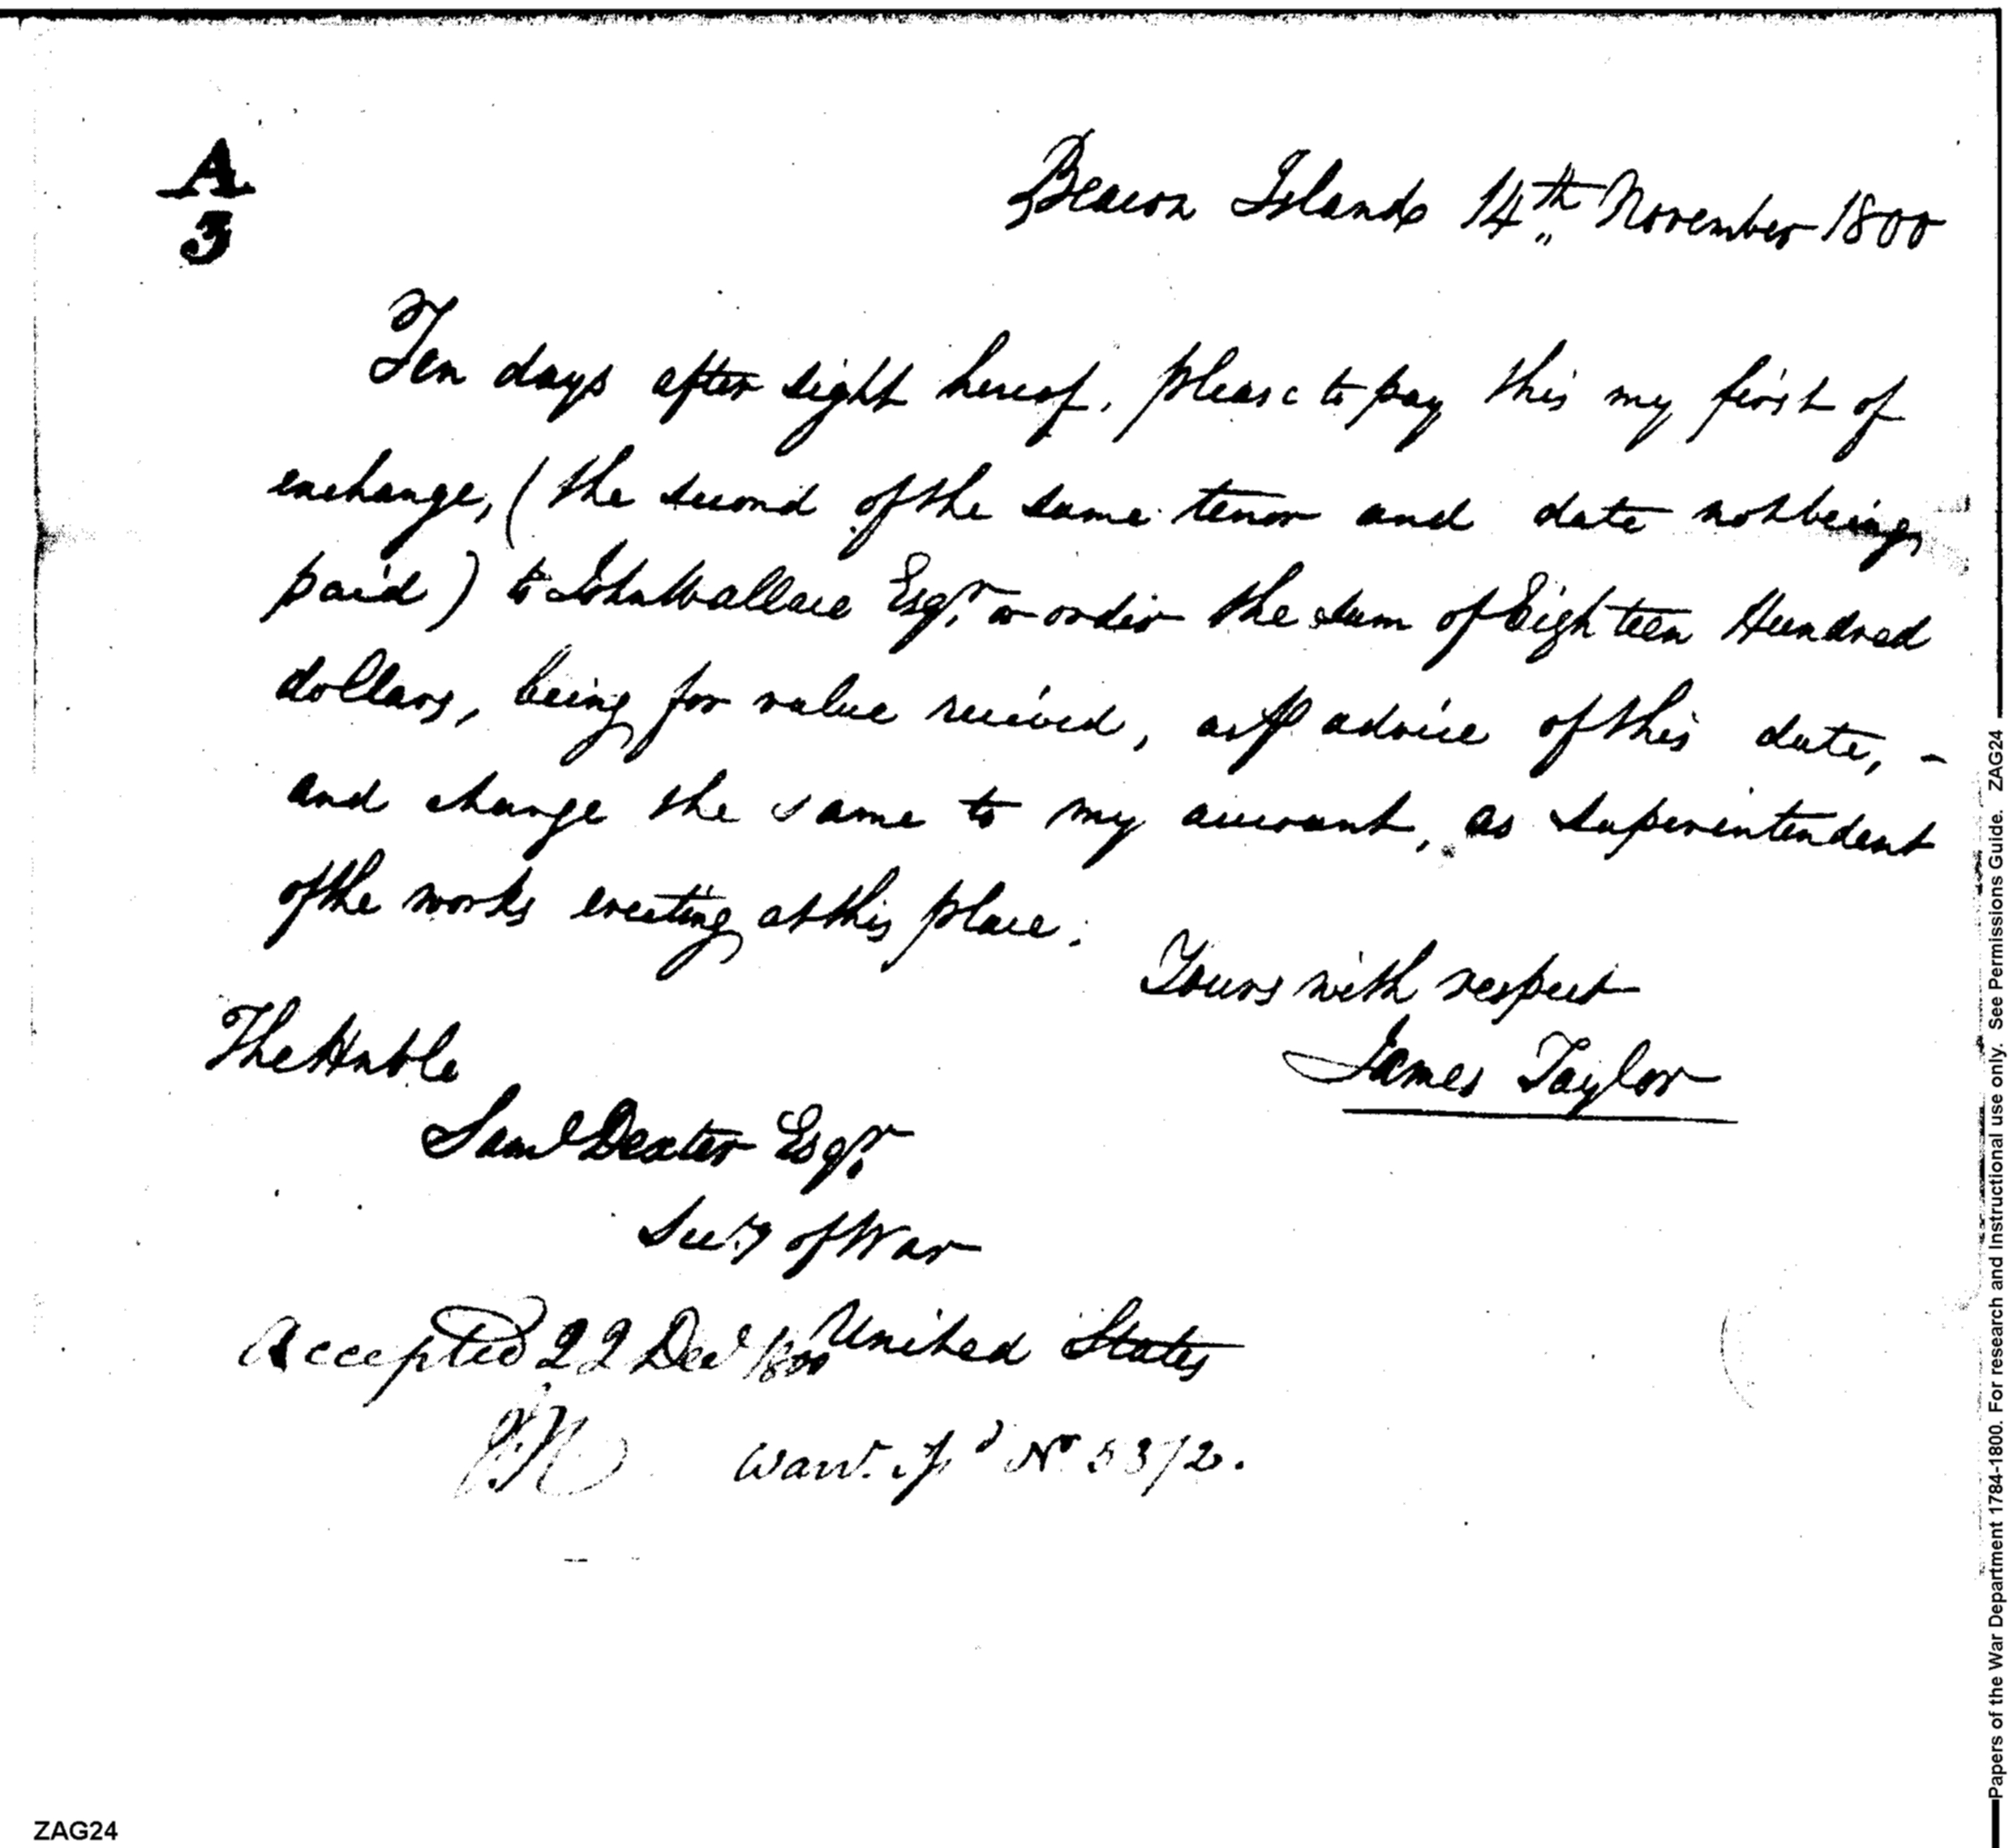 A
3
Beacon Island 14th November 1800
Ten days after sight hereof, please to pay this my first of
exchange, (the second of the same tenor and date not being
paid) to John Wallace Esqr. or order the sum of Eighteen Hundred
dollars, being for value received, as p advice of this date, -
and charge the same to my account, as Superintendent
of the works erecting at this place.
Yours with respect
James Taylor
The Honble
Saml Dexter Esqr.
Secy of War
United States
Accepted 22 Decr 1800
Warrt. No 5372.
Papers of the War Department 1784-1800. For research and Instructional use only. See Permissions Guide. ZAG24
ZAG24